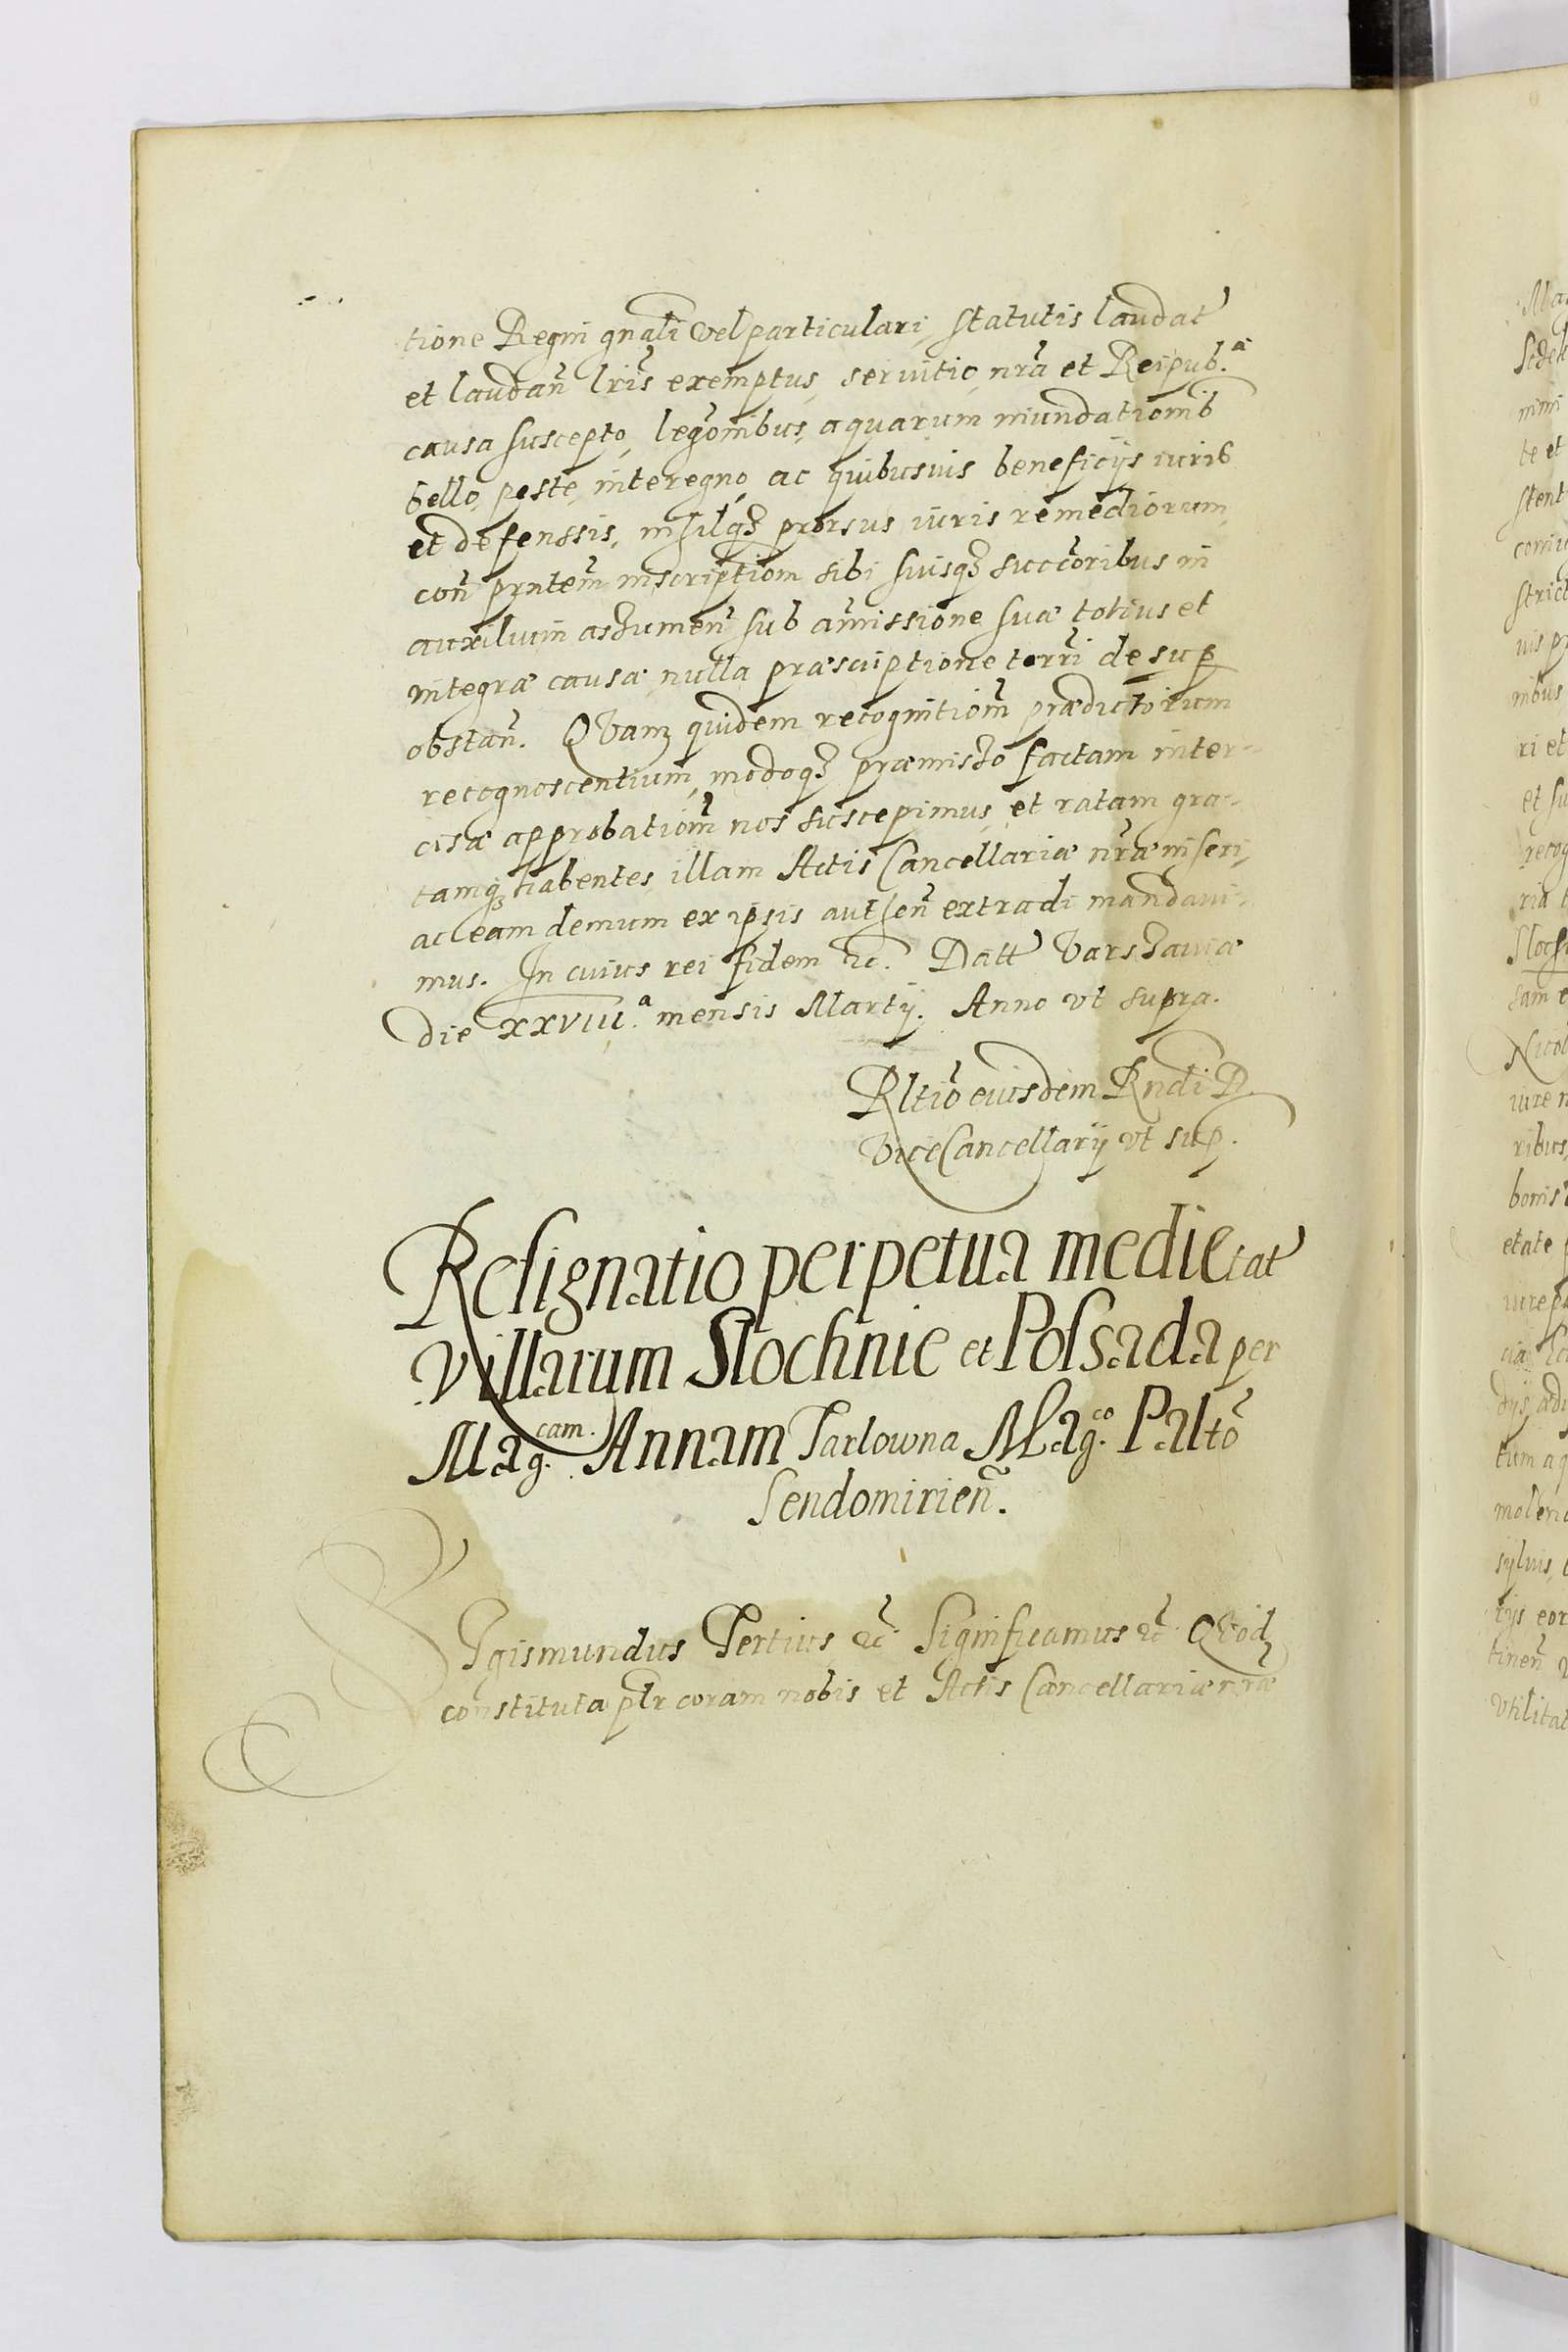 tione Regni gnali vel particulari, statutis laudat
et laudañ lris exemptus, servitio nra et Reipub.a
causa suscepto, legõnibus, aquarum inundationib
bello, peste, interegno, ac quibusuis beneficijs iurib
et defenssis, insilqz prorsus iuris remediorum,
coñ prntem inscriptiom sibi suisqz succõribus in
auxilium aszumeñ sub amissione suæ totius et
integræ causæ nulla præscriptione terrri de sup
obstañ. QVam quidem recognitiom prædictorum
recognoscentium, modoqz præmiszo factam inter-
cisæ approbatiom nos suscepimus, et ratam gra-
tamqz habentes, illam Actis Cancellariæ nræ inseri,
ac eam demum ex ipsis autseñ extradi mandaui-
mus. In cuius rei fidem &c. Datt Varszauiæ
die XXVIII.a mensis Martij. Anno vt supra.
Rltio eiusdem Rndi D.
ViceCancellarij vt sup.
Resignatio perpetua medietat
Villarum Slochnie et Polsada per
Mag.cam. Annam Tarlowna Mag.co Palto
Sendomirieñ.
SIgismundus Tertius &c Significamus &c QVod
constituta plr coram nobis et Actis Cancellariæ nræ
Ma
Sede
mini
te et
stent
coniu
strict
uis pr
nibus
ri et
et su
recog
ria t
Sloch
sam e
Nicol
iure n
ribus,
bonis
etate p
iure p
dijs, ædi
tum aq
molen
syluis,
tijs eor
tineñ
Vtilitat